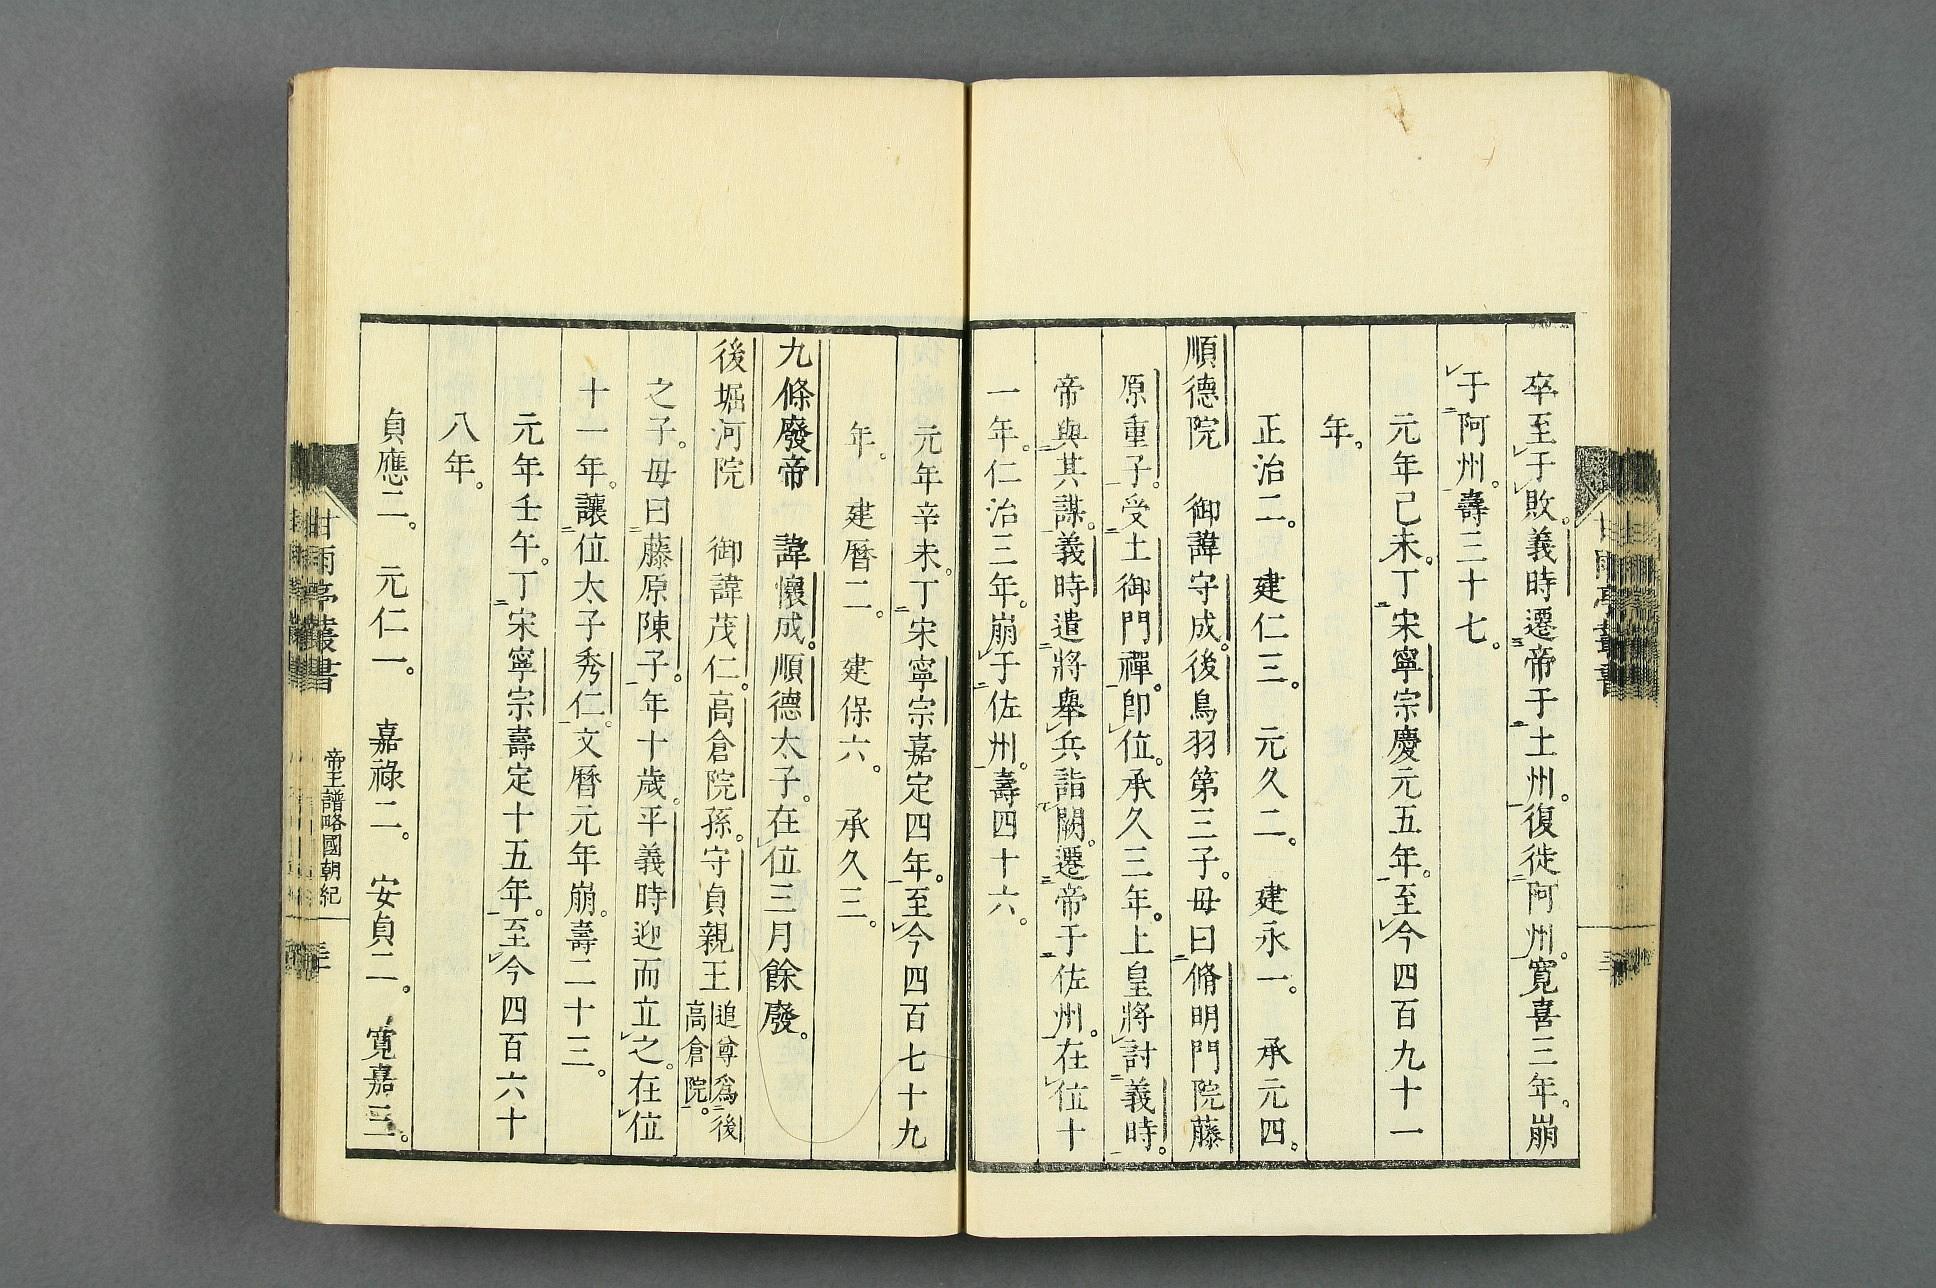 卒至于敗。義時遷帝于土州。復徙阿州。寬喜三年。崩
于阿州。壽三十七。
元年己未。丁宋寧宗慶元五年。至今四百九十一
年。
正治二。 建仁三。 元久二。 建永一。 承元四。
順德院 御諱守成。後鳥羽第三子。母曰脩明門院藤
原重子。受土御門禪。卽位。承久三年。上皇將討義時。
帝與其謀。義時遣將舉兵詣闕。遷帝于佐州。在位十
一年。仁治三年。崩于佐州。壽四十六。
元年辛未。丁宋寧宗嘉定四年。至今四百七十九
年。 建曆二。 建保六。 承久三。
九條廢帝 諱懷成。順德太子。在位三月餘廢。
後堀河院 御諱茂仁。高倉院孫。守貞親王追尊爲後高倉院。
之子。母曰藤原陳子。年十歲。平義時迎而立之。在位
十一年。讓位太子秀仁。文曆元年崩。壽二十三。
元年壬午。丁宋寧宗壽定十五年。至今四百六十
八年。
貞應二。 元仁一。 嘉祿二。 安貞二。 寬嘉三。
甘雨亭叢書 帝王譜略國朝紀